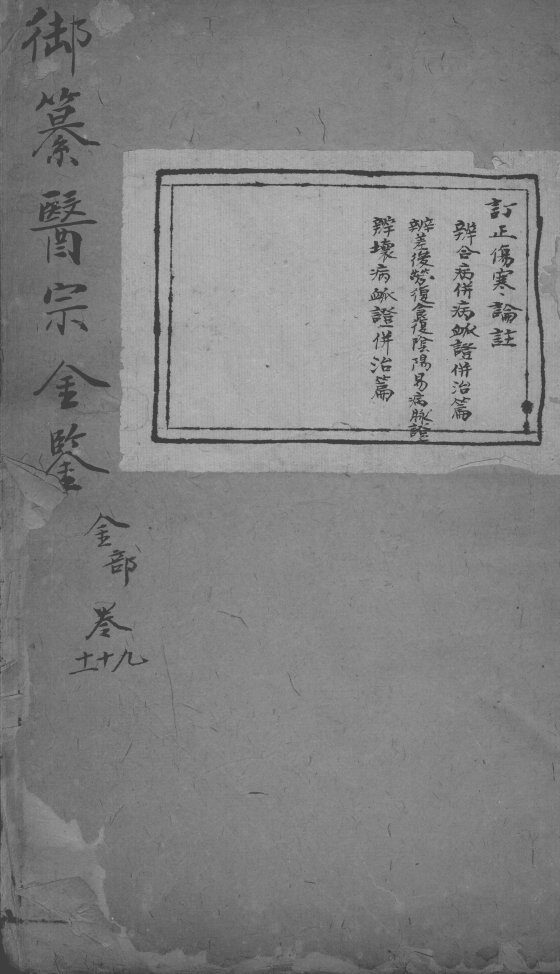 御纂醫宗金鑒
金部
卷
九十十一
訂正傷寒論註
辨合病併病脈證併治篇
辨差後勞復食復陰陽易病脉證
辨壞病脈證併治篇